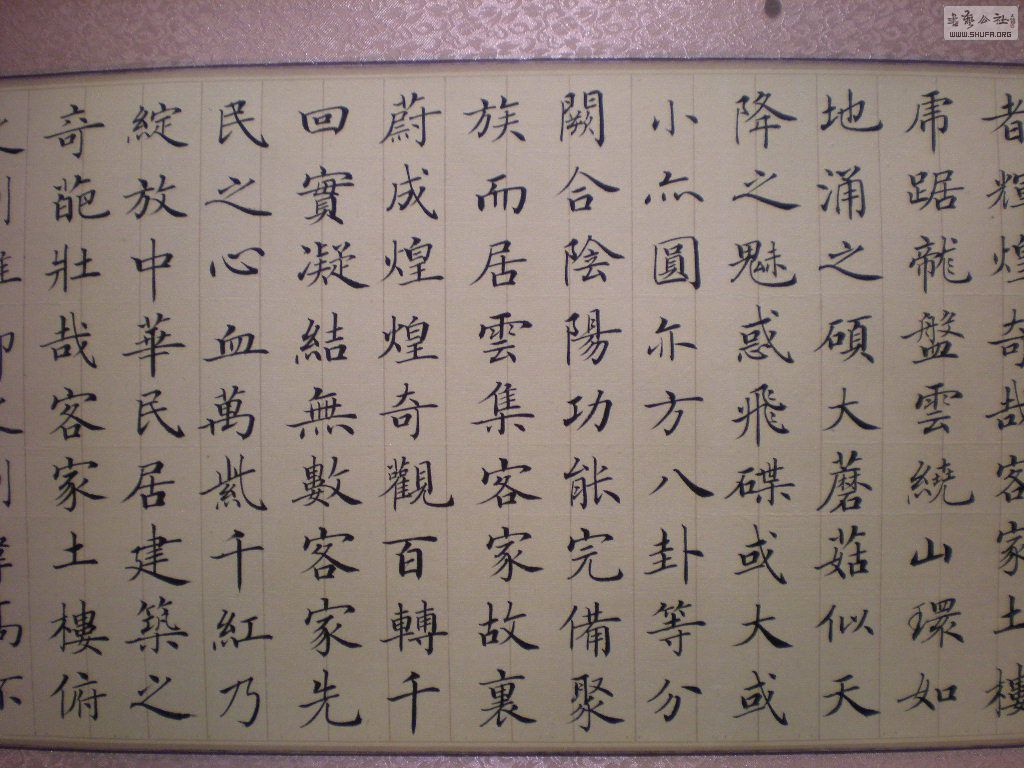 者輝煌奇哉客家土樓
虎踞龍盤雲繞山環如
地涌之碩大蘑菇似天
降之魅惑飛碟或大或
小亦圓亦方八卦等分
闕合陰陽功能完備聚
族而居雲集客家故裏
蔚成煌煌奇觀百轉千
回實凝結無數客家先
民之心血萬紫千紅乃
綻放中華民居建築之
奇葩壯哉客家土樓俯
WWW.SHUFA.ORG